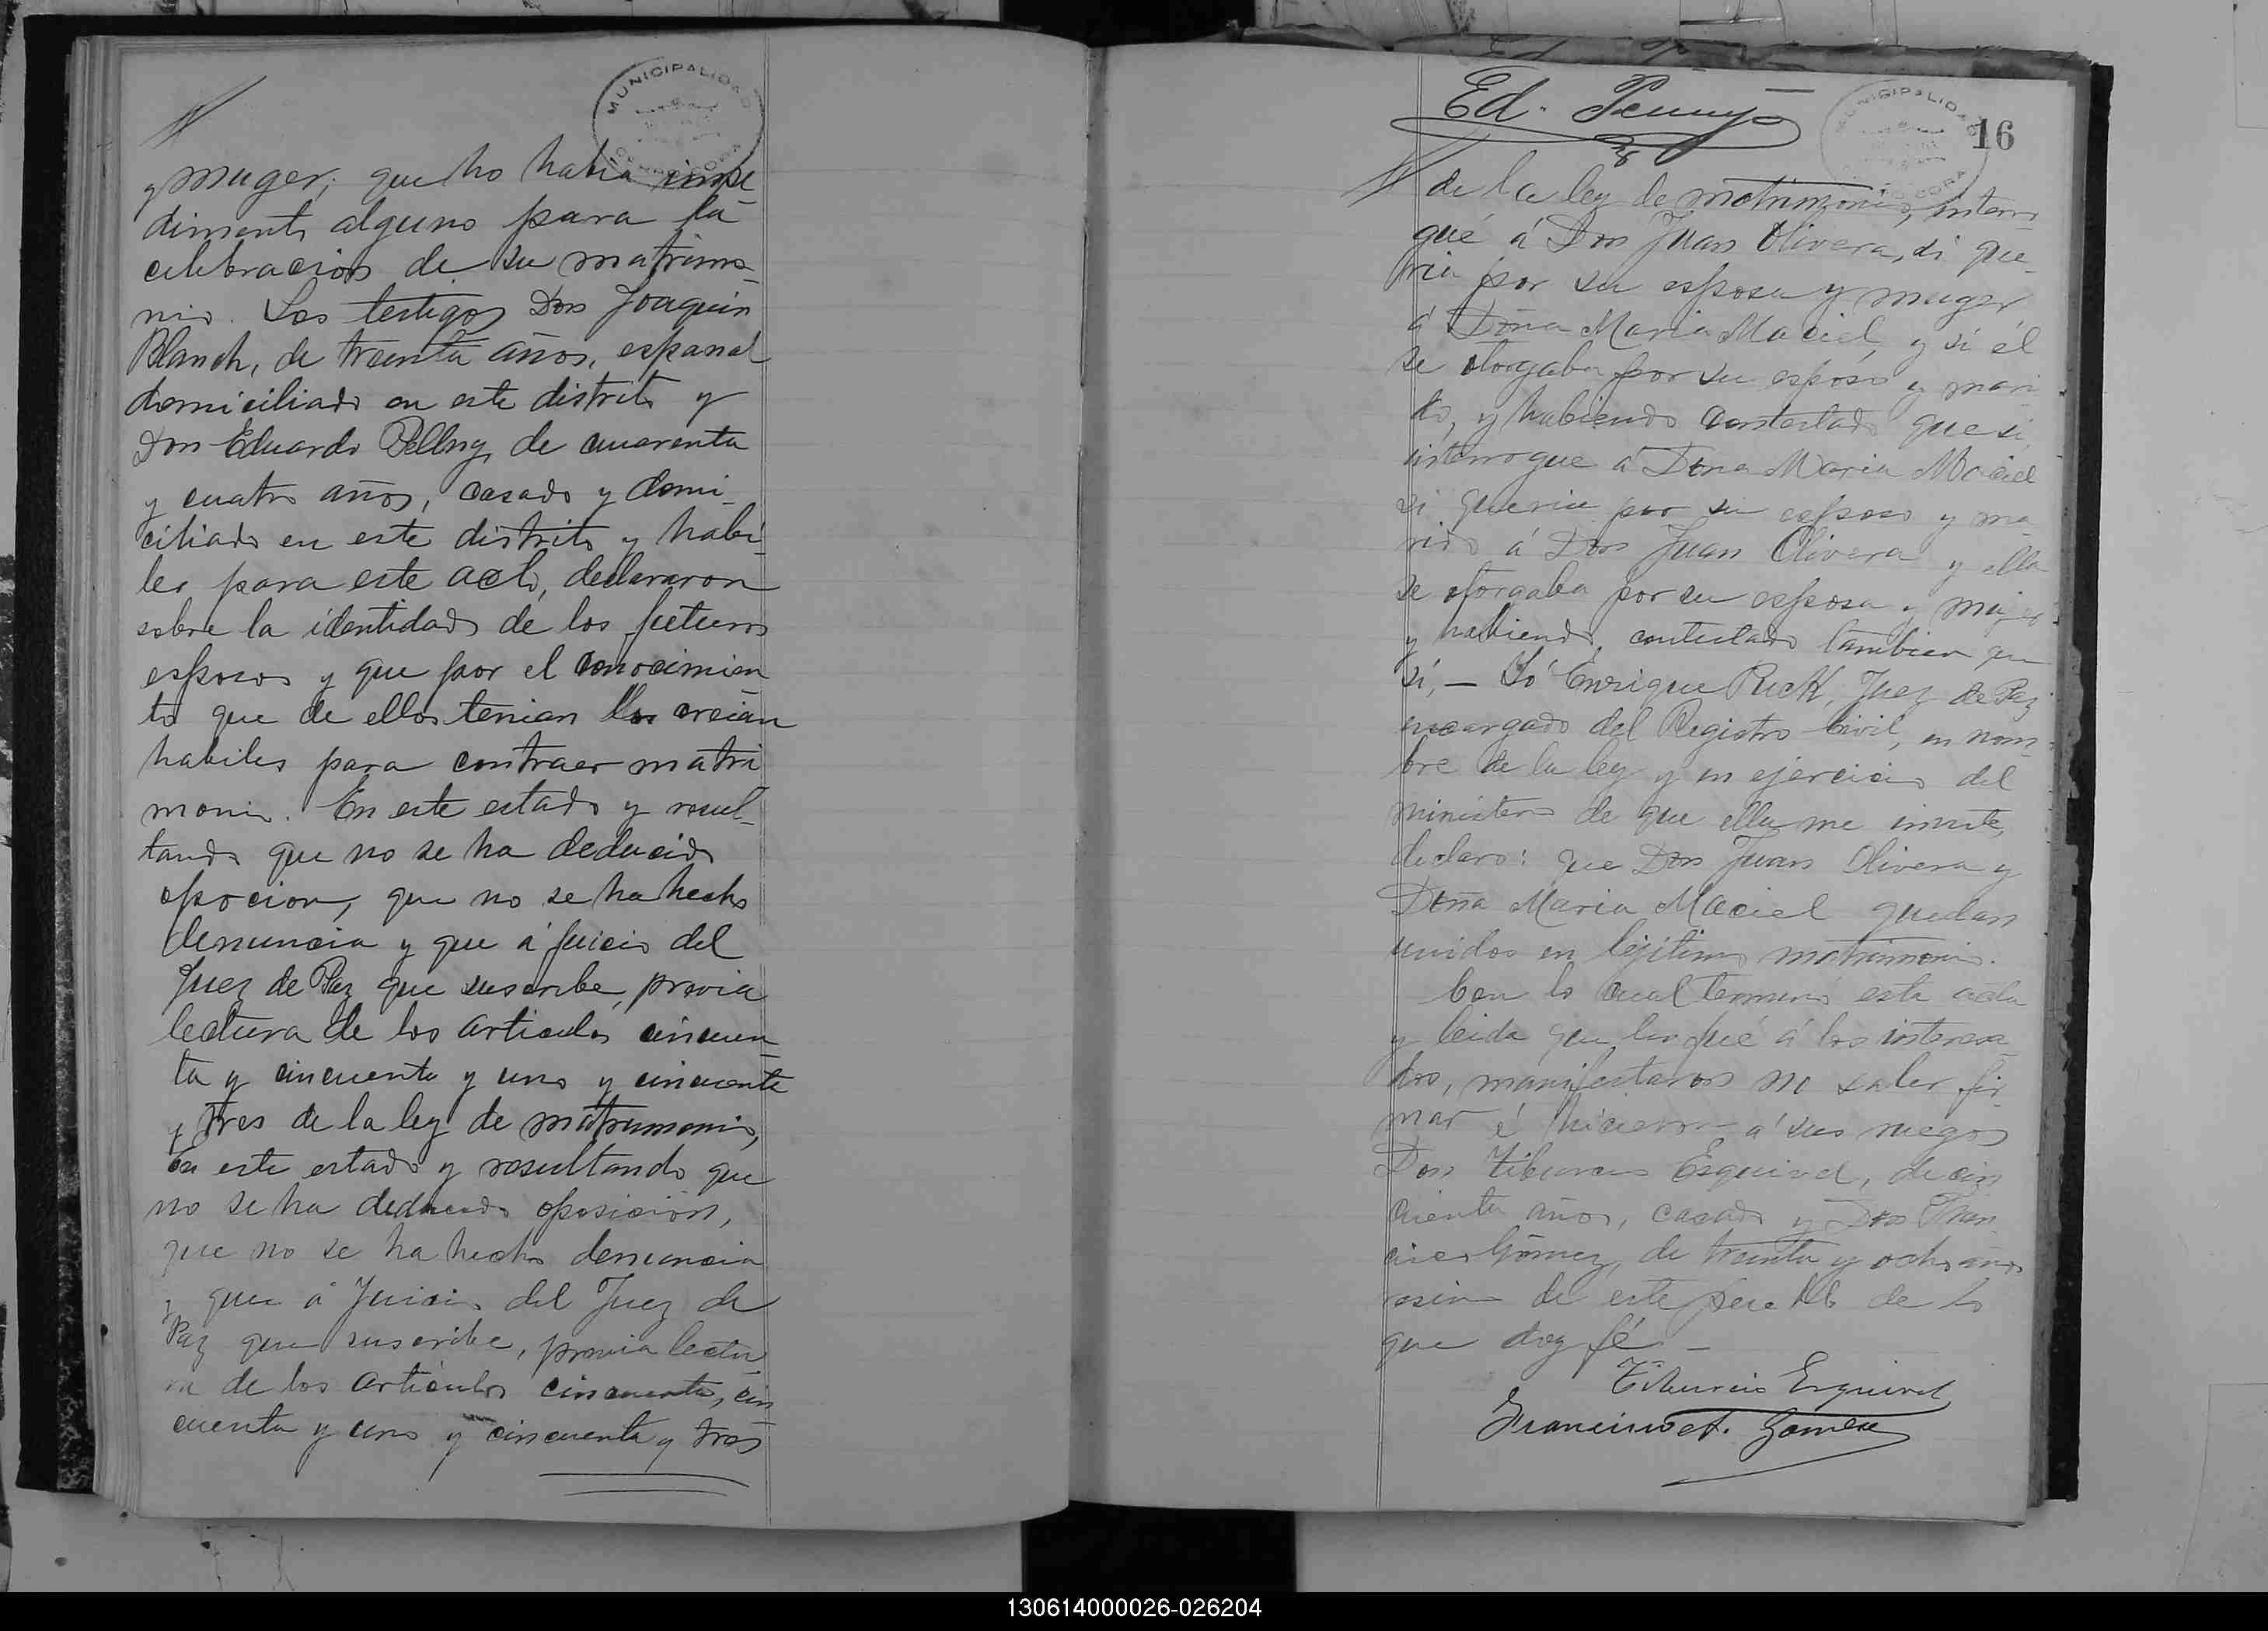 MUNICIPALIDAD
y muger; que no habia impe
dimento alguno para la
celebracion de su matrimo-
nio. Los testigos Don Joaquin
Blanch, de treinta años, español
domiciliado en este distrito y
Don Eduardo de cuarenta
y cuatro años, casado y domi-
ciliado en este distrito y habi-
les para este acto, declararon
sobre la identidad de los futuros
esposos y que por el conocimien
to que de ellos tenian los creian
habiles para contraer matri
monio. En este estado y resul-
tando que no se ha deducido
oposcion, que no se ha hecho
denuncia y que á juicio del
Juez de Paz que suscribe, previa
lectura de los articulos cincuen-
ta y cincuenta y uno y cincuenta
y tres de la ley de matrimonio,
En este estado y resultando que
no se ha deducido oposicion,
que no se ha hecho denuncia
y que á Juicio del Juez de
Paz que suscribe, previa lectu
ra de los articulos cincuenta, cin
cuenta y uno y cincuenta y tres
Ed.
MUNICIPALIDAD
16
de la ley de matrimonio, interro
gué á Don Juan Olivera, si que-
ria por su esposa y muger,
á Doña Maria Maciel, y si él
se otorgaba por su esposo y mari
do, y habiendo contestado que si,
interrogue á Doña Maria Maciel
si queria por su esposo y ma
rido á Don Juan Olivera y ella
se otorgaba por su esposa y mujer
y habiendo contestado tambien que
sí, — Yó Enrique Ruck, Juez de Paz
encargado del Registro Civil, en nom-
bre de la ley y en ejercicio del
ministerio de que ella me inviste,
declaro: que Don Juan Olivera y
Doña Maria Maciel quedan
unidos en lejitimo matrimonio.
Con lo cual terminó esta acta
y leida que les fué á los interesa-
dos, manifestaron no saber fir-
mar é hicieron á sus ruegos
Don Tiburcio Esquivel, de cin
cuenta años, casado y Don Fran
cisco Gómez, de treinta y ocho años
vecino de este pueblo de lo
que doy fé —
Tiburcio Esquivel
Francisco A. Gomez
130614000026-026204